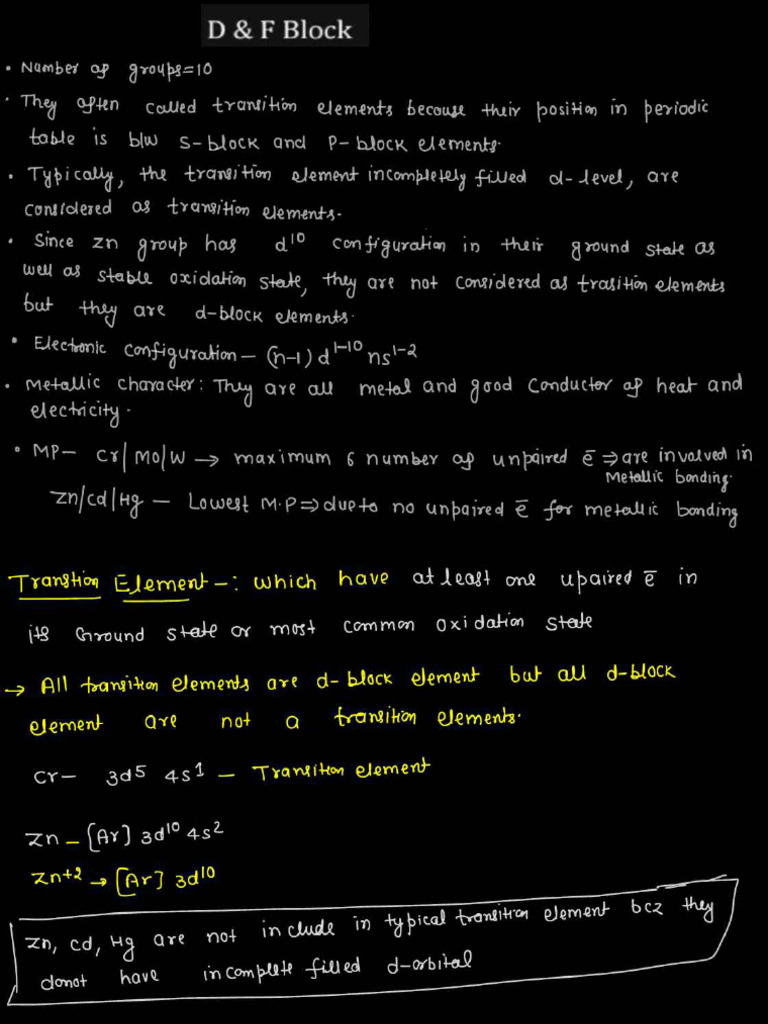 D & F Block
• Number of groups=10
• They often called transition elements because their position in periodic
table is b/w S-block and P-block elements.
• Typically, the transition element incompletely filled d-level, are
considered as transition elements.
• Since zn group has d¹⁰ configuration in their ground state as
well as stable oxidation state, they are not considered as trasition elements
but they are d-block elements.
• Electronic configuration – (n-1) d¹⁻¹⁰ ns¹⁻²
• Metallic character: They are all metal and good conductor of heat and
electricity.
• MP– Cr/Mo/W → maximum 6 number of unpaired e̅ ⇒ are involved in
Metallic bonding.
Zn/cd/Hg – Lowest M.P ⇒ due to no unpaired e̅ for metallic bonding
Transtion Element –: which have at least one upaired e̅ in
its Ground state or most common oxidation state
→ All transition elements are d-block element but all d-block
element are not a transition elements.
Cr– 3d⁵ 4s¹ – Transition element
Zn – [Ar] 3d¹⁰ 4s²
Zn⁺² → [Ar] 3d¹⁰
Zn, cd, Hg are not include in typical transition element bcz they
donot have incomplete filled d-orbital